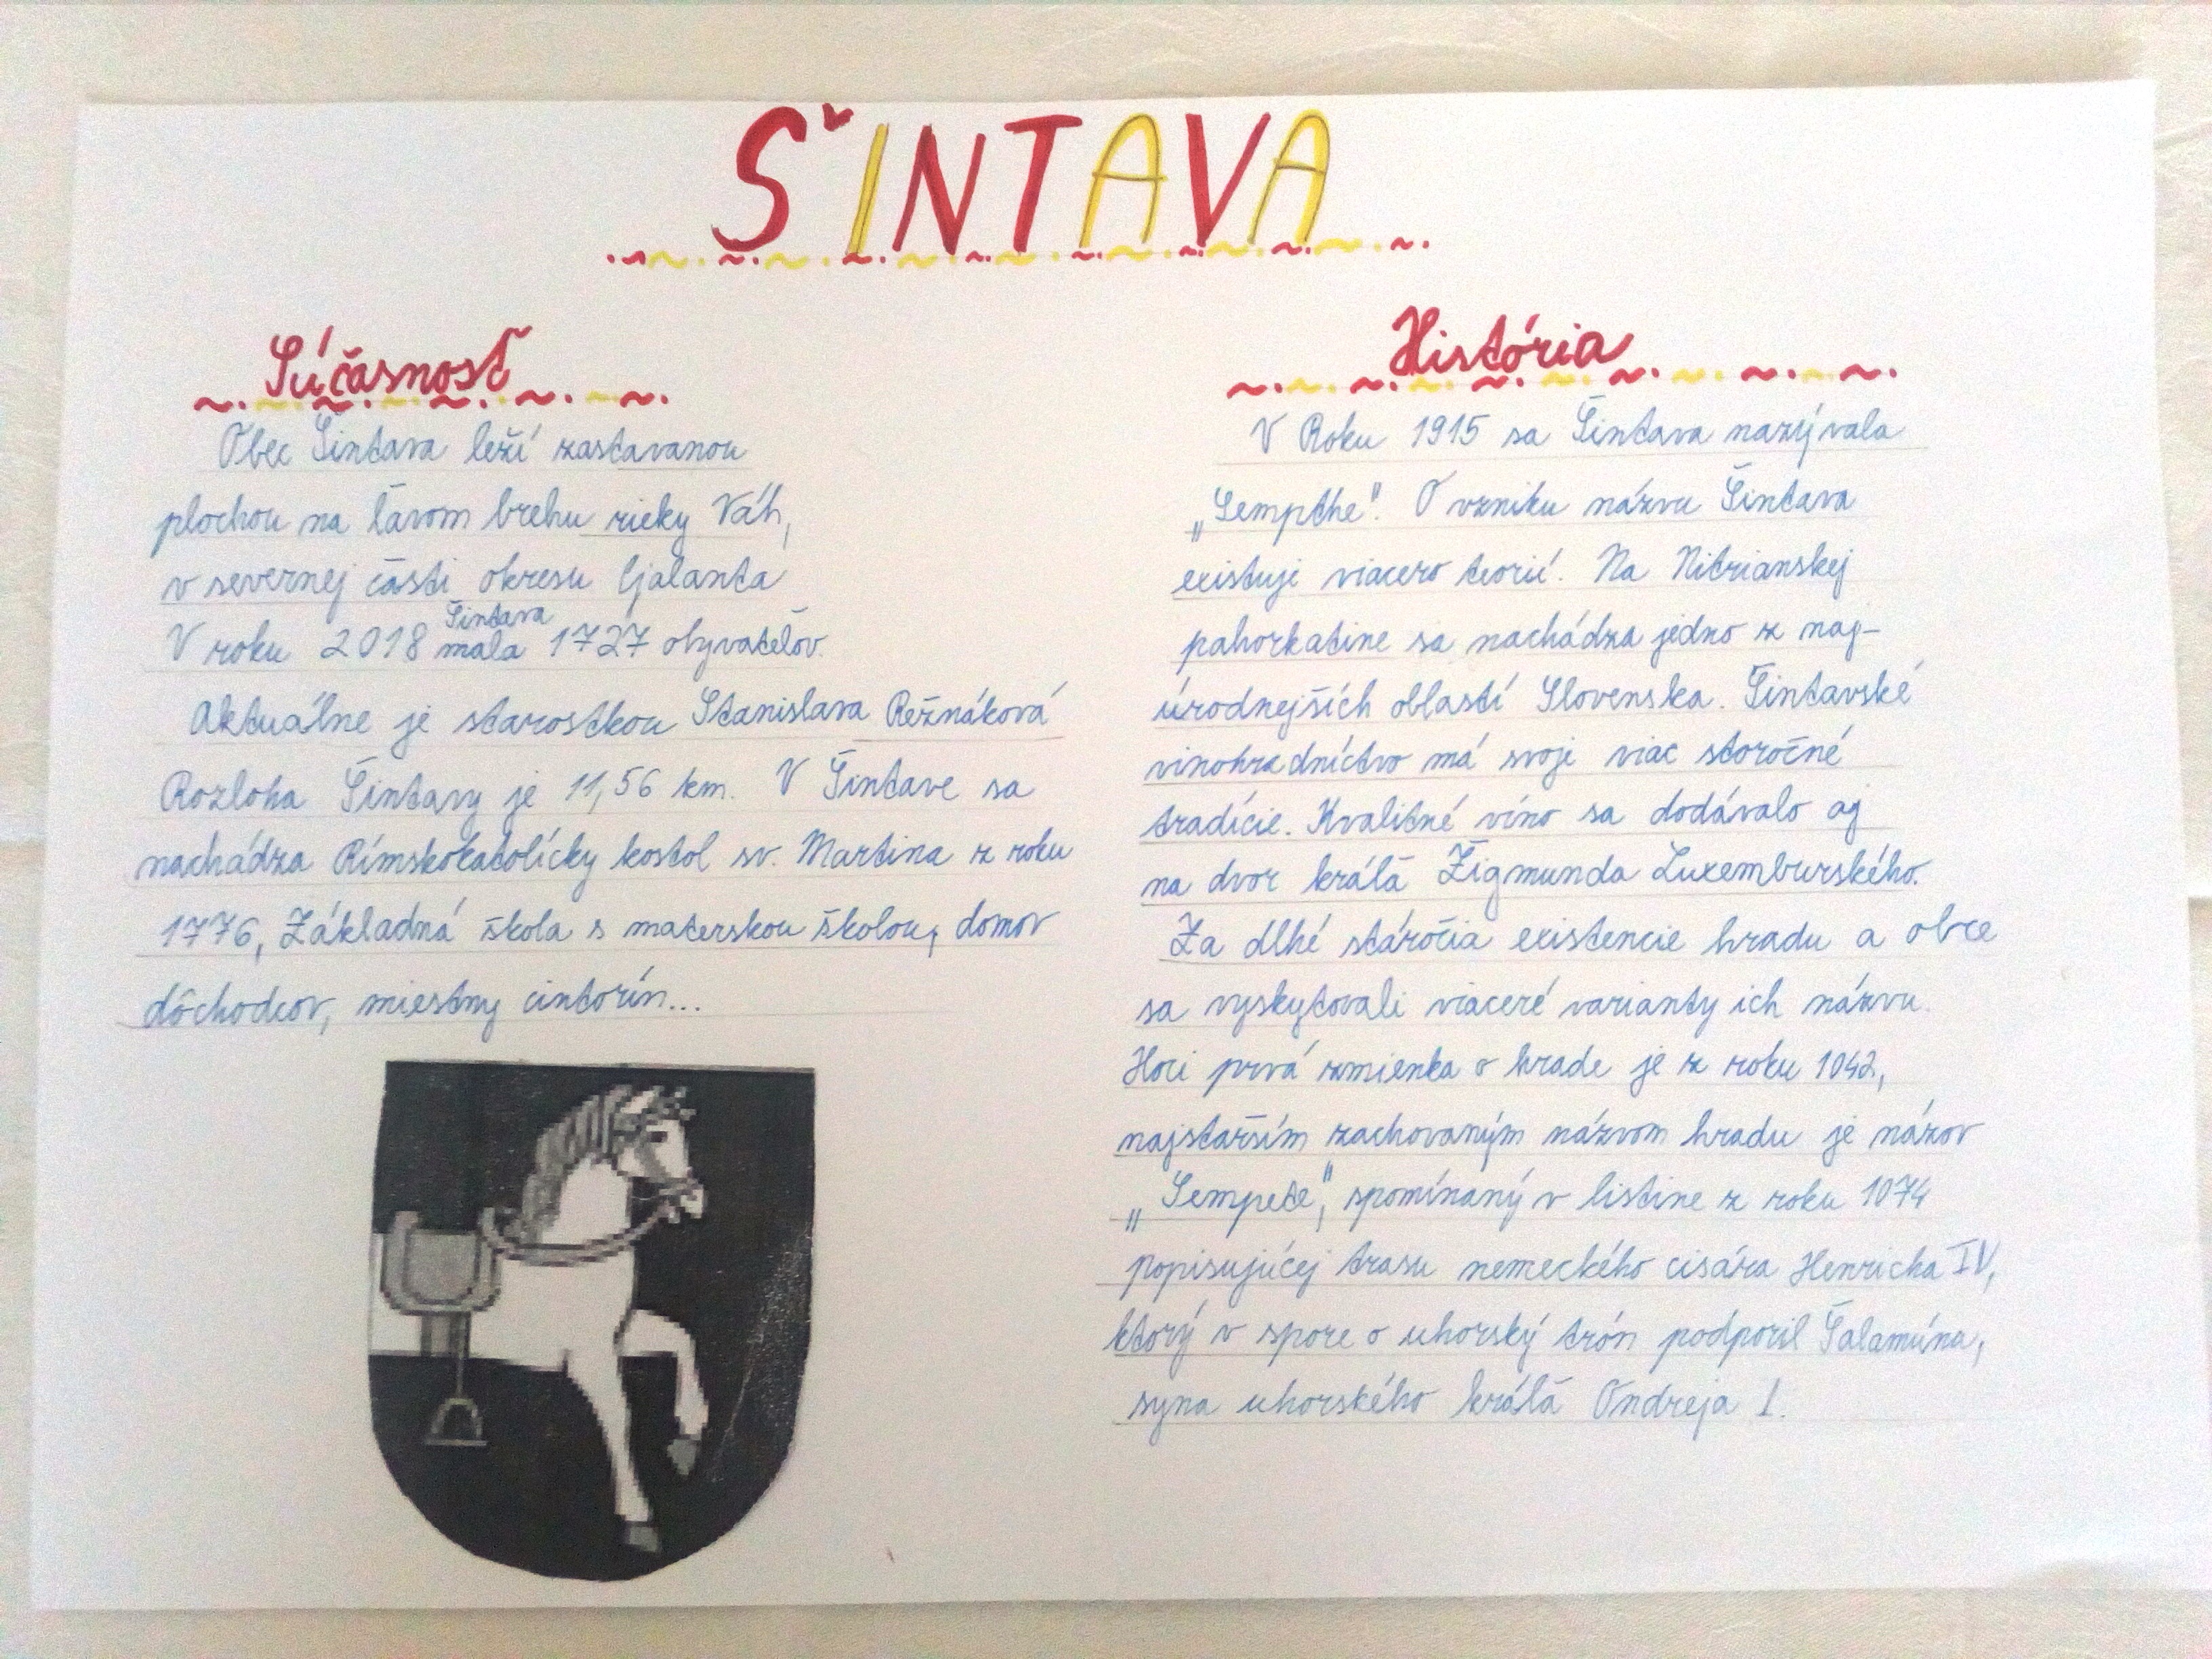 ŠINTAVA
Súčasnosť
Obec Šintava leží zastavanou
plochou na ľavom brehu rieky Váh,
v severnej časti okresu Galanta
V roku 2018 Šintava mala 1727 obyvateľov.
Aktuálne je starostkou Stanislava Režnáková
Rozloha Šintavy je 11,56 km. V Šintave sa
nachádza Rímskokatolícky kostol sv. Martina z roku
1776, Základná škola s materskou školou, domov
dôchodcov, miestny cintorín...
História
V Roku 1915 sa Šintava nazývala
„Sempthe". O vzniku názvu Šintava
existuje viacero teorií. Na Nitrianskej
pahorkatine sa nachádza jedno z naj-
úrodnejších oblastí Slovenska. Šintavské
vinohradníctvo má svoje viac storočné
tradície. Kvalitné víno sa dodávalo aj
na dvor kráľa Žigmunda Luxemburského.
Za dlhé stáročia existencie hradu a obce
sa vyskytovali viaceré varianty ich názvu.
Hoci prvá zmienka o hrade je z roku 1042,
najstarším zachovaným názvom hradu je názov
„Sempete", spomínaný v listine z roku 1074
popisujúcej trasu nemeckého cisára Henricha IV,
ktorý v spore o uhorský trón podporil Šalamúna,
syna uhorského kráľa Ondreja I.